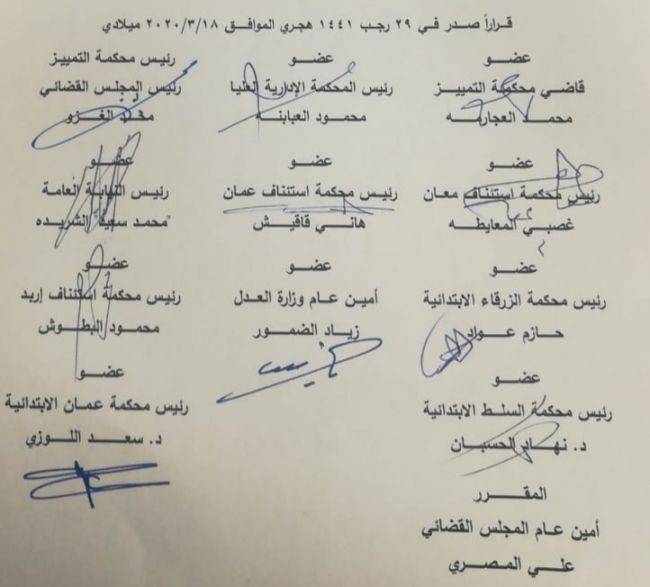 قراراً صدر في ٢٩ رجب ١٤٤١ هجري الموافق ٢٠٢٠/٣/١٨ ميلادي
عضو
قاضي محكمة التمييز
محمد العجارمه
عضو
رئيس المحكمة الإدارية العليا
محمود العبابنه
رئيس محكمة التمييز
رئيس المجلس القضائي
محمد الغزو
عضو
رئيس محكمة استئناف معان
غصبي المعايطه
عضو
رئيس محكمة استئناف عمان
هاني قاقيش
عضو
رئيس النيابة العامة
محمد سعيد الشريده
عضو
رئيس محكمة الزرقاء الابتدائية
حازم عواد
عضو
أمين عام وزارة العدل
زياد الضمور
عضو
رئيس محكمة استئناف إربد
محمود البطوش
عضو
رئيس محكمة السلط الابتدائية
د. نهاد الحسبان
عضو
رئيس محكمة عمان الابتدائية
د. سعد اللوزي
المقرر
أمين عام المجلس القضائي
علي المصري